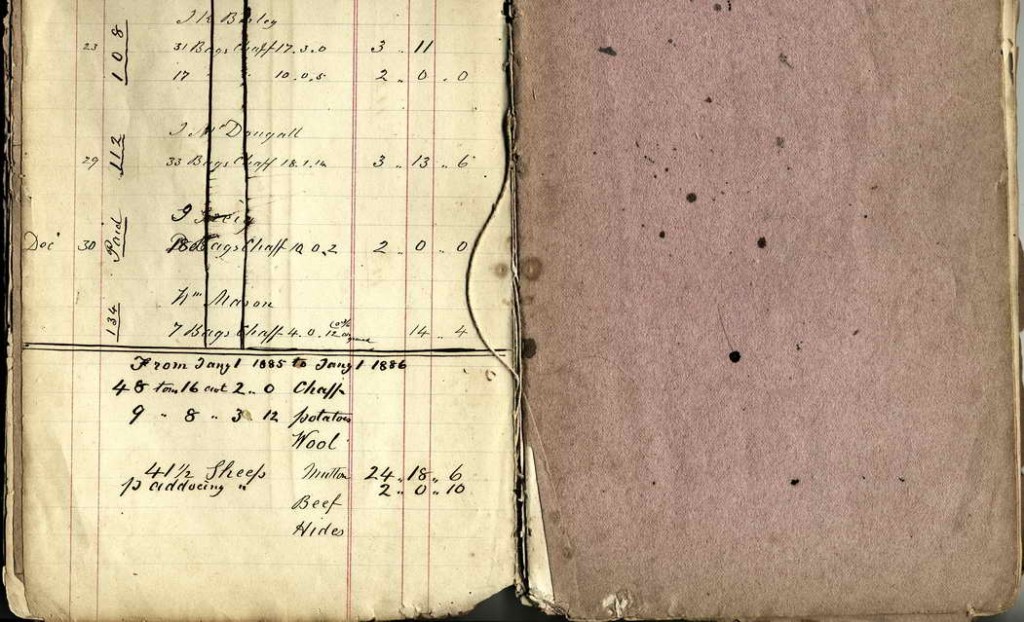 J R Bailey
23 108 31 Bags Chaff 17.3.0 3 .. 11
17 " " 10.0.5 2 .. 0 .. 0
J McDougall
29 112 33 Bags Chaff 18.1.14 3 .. 13 .. 6
J
Dec 30 Paid Bags Chaff 10.0.2 2 .. 0 .. 0
Wm Mason
134 7 Bags Chaff 4.0.12 14 .. 4
From Jany 1 1885 to Jany 1 1886
48 tons 16 cwt 2 .. 0 Chaff
9 " 8 " 3 " 12 potatoes
Wool
41 1/2 Sheep Mutton 24 .. 18 .. 6
paddocing " 2 .. 0 .. 10
Beef
Hides